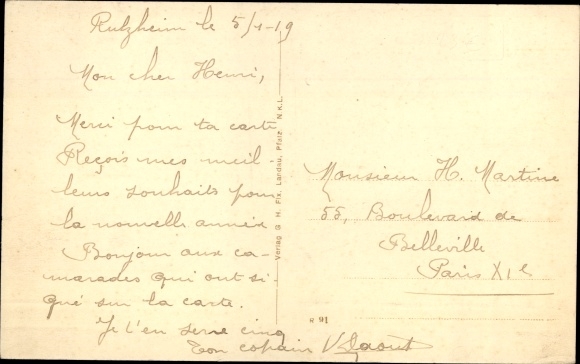 Rülzheim le 5/1-19
Mon cher Henri,
Merci pour ta carte
Reçois mes meil-
leurs souhaits pour
la nouvelle année
Bonjour aux ca-
marades qui ont si
gné sur la carte.
Je t'en serre cinq
Ton copain
Verlag G. H. Fix, Landau, Pfalz. N.K.L.
Monsieur H. Martine
55, Boulevard de
Belleville
Paris XIe
R 91